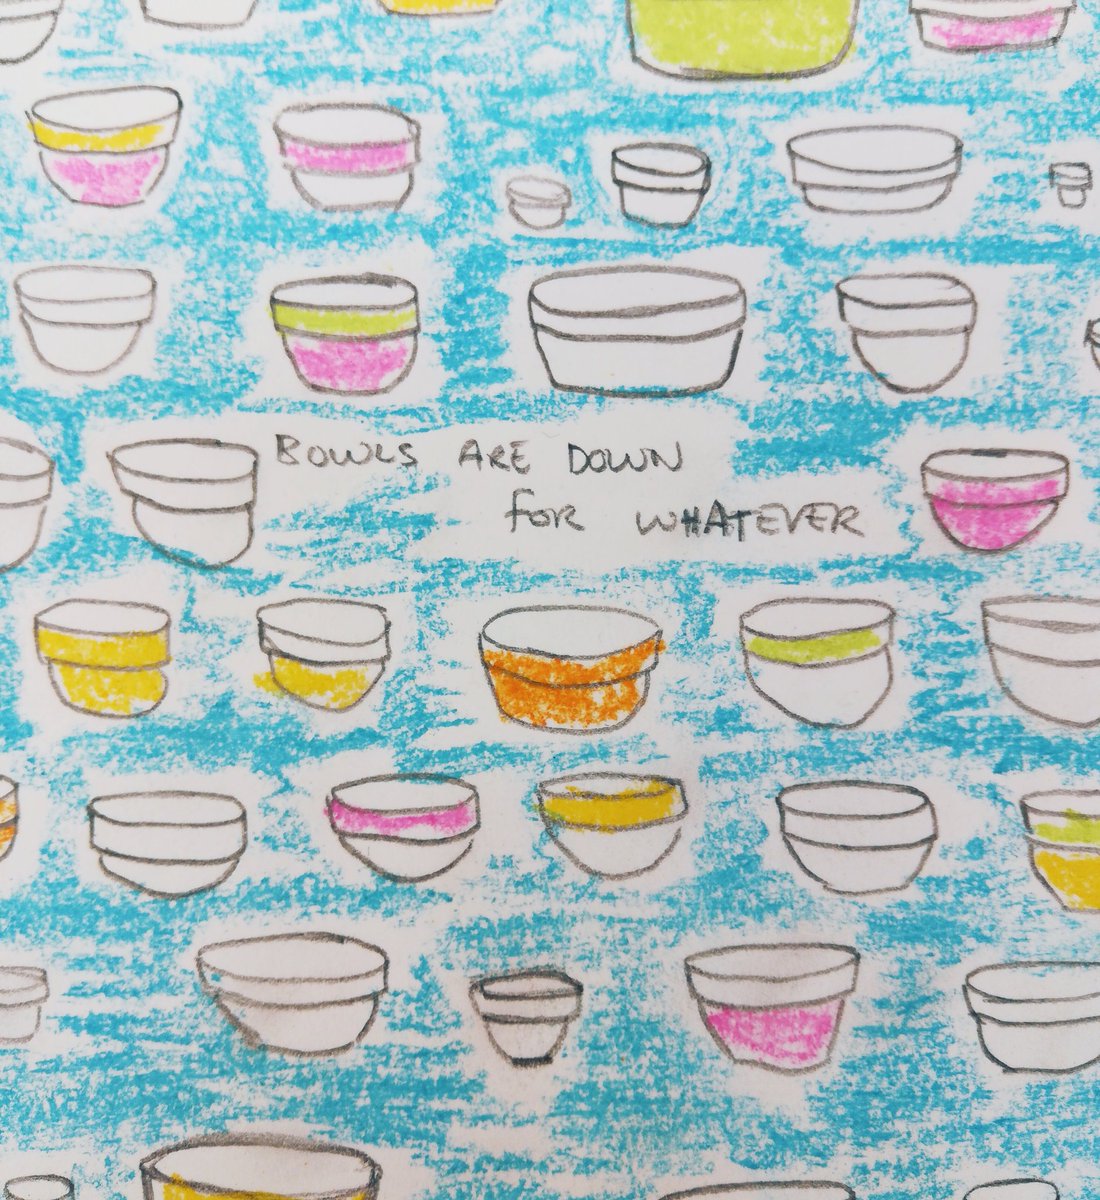 BOWLS ARE DOWN
FOR WHATEVER